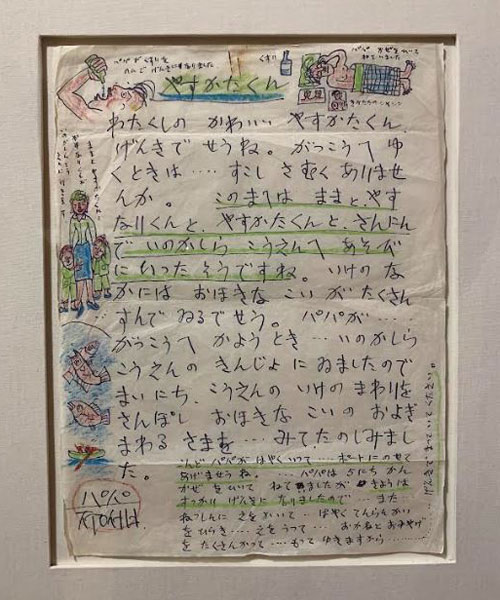 パパがくすりを
のんで げんきになりました
くすり
パパ かぜをひいて
ねていました
やすかたくん
わたくしの かわいい やすかたくん、
げんきで せうね。がっこうへ ゆ
くときは‥‥ すこし さむく ありませ
んか。 このまへは ままと、やす
なりくんと、やすかたくんと、さんにん
で いのかしら こうえんへ あそび
に いった そうですね。いけの な
かには おほきな こい が たくさん
すんで ゐるでせう。 パパが‥‥
がっこうへ かよう とき… いのかしら
こうえんの きんじょ に ゐましたので
まいにち、こうえんの いけの まわりを
さんぽし おほきな こいの およぎ
まわる さまを… みてたのしみまし
た。
こんど パパが はやくいって‥‥ ボートにのせて
あげませうね。 ‥‥ パパは 5にちかん
かぜ を ひいて ねてゐましたが きょうは
すっかり げんきに なりましたので… また
ねっしんに えを かいて… はやく てんらんかい
をひらき… えを うって… おかねと おみやげ
を たくさんかって ‥‥ もって ゆきますから
パパ